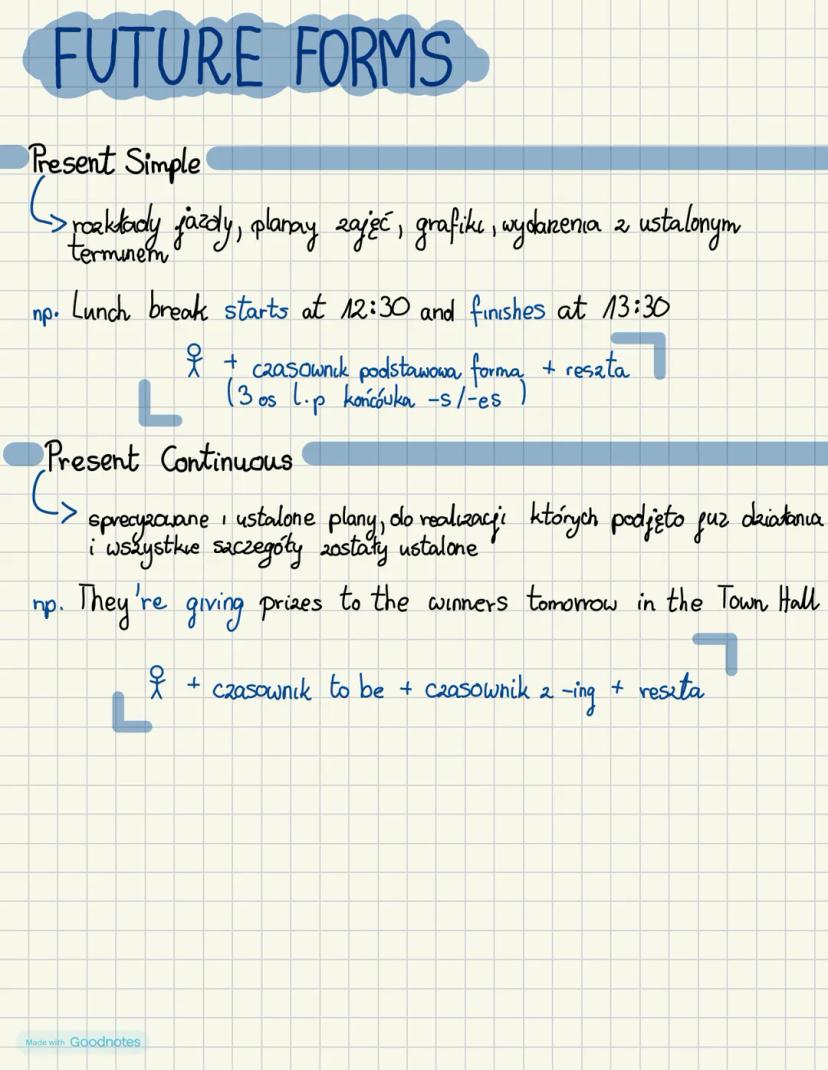 FUTURE FORMS
Present Simple
rozkłady jazdy, plany zajęć, grafiki, wydarzenia z ustalonym
terminem
np. Lunch break starts at 12:30 and finishes at 13:30
+ czasownik podstawowa forma + reszta
(3 os l.p końcówka -s/-es)
Present Continuous
sprecyzowane i ustalone plany, do realizacji których podjęto już działania
i wszystkie szczegóły zostały ustalone
np. They're giving prizes to the winners tomorrow in the Town Hall
+ czasownik to be + czasownik z -ing + reszta
Made with Goodnotes